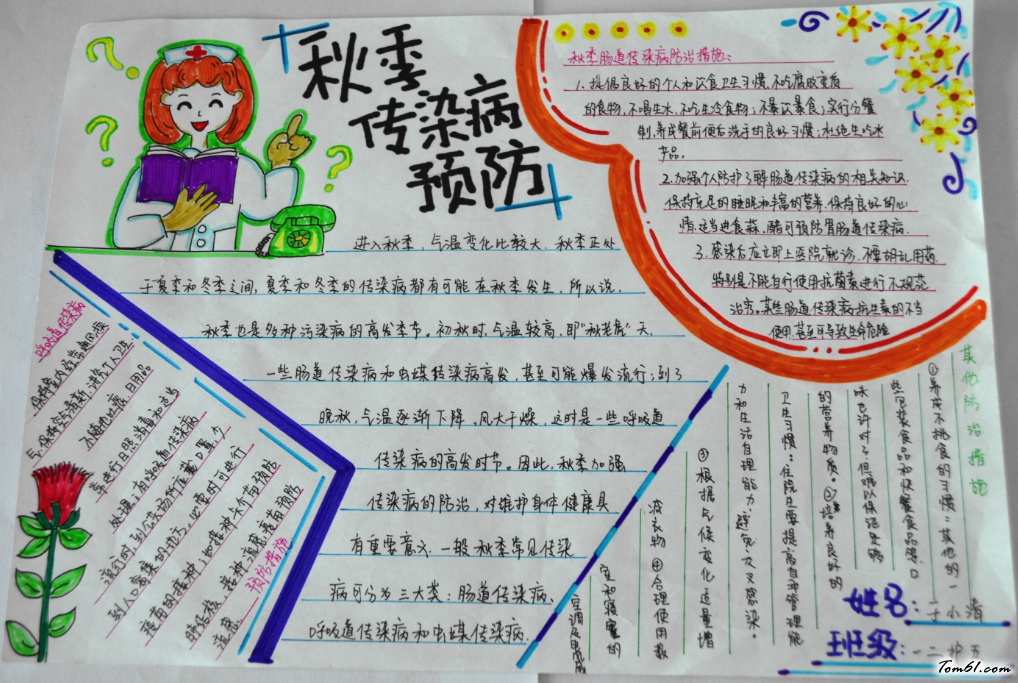 秋季
传染病
预防
进入秋季，气温变化比较大，秋季正处
于夏季和冬季之间，夏季和冬季的传染病都有可能在秋季发生，所以说，
秋季也是多种污染病的高发季节。初秋时，气温较高，即“秋老虎”天，
一些肠道传染病和虫媒传染病高发，甚至可能爆发流行；到了
晚秋，气温逐渐下降，风大干燥，这时是一些呼吸道
传染病的高发时节。因此，秋季加强
传染病的防治，对维护身体健康具
有重要意义，一般秋季常见传染
病可分为三大类：肠道传染病、
呼吸道传染病和虫媒传染病。
秋季肠道传染病防治措施：
1、提倡良好的个人和饮食卫生习惯，不吃腐败变质
的食物，不喝生水，不吃生冷食物；不暴饮暴食；实行分餐
制，养成餐前便后洗手的良好习惯；杜绝生吃水
产品。
2.加强个人防护了解肠道传染病的相关知识
保持充足的睡眠和丰富的营养，保持良好的心
情，适当进食蒜、醋可预防胃肠道传染病
3.感染后应立即上医院就诊，不要胡乱用药
特别是不能自行使用抗菌素进行不规范
治疗。某些肠道传染病抗生素的不当
使用甚至可导致生命危险
呼吸道传染病
预防措施
保持室内经常通风换
气，保持空气清新，讲究个人卫生
不随地吐痰，日用品
等进行日照消毒和适当
处理；有呼吸道传染病
流行时，到公共场所应戴口罩，少
到人口密集的地方。必要时可进行
疫苗的接种；如接种卡介苗预防
肺结核、接种流感疫苗预防
流感。
其他防治措施
①养成不挑食的习惯：其他的一
些包装食品和快餐食品等，口
味也许对了，但难以保证足够
的营养物质。②培养良好的
卫生习惯：住院生要提高自我管理能
力和生活自理能力，避免交叉感染。
③根据气候变化适量增
减衣物，④合理使用教
室和寝室的
空调及电扇
姓名：于小清
班级：一二护五
Tom61.com